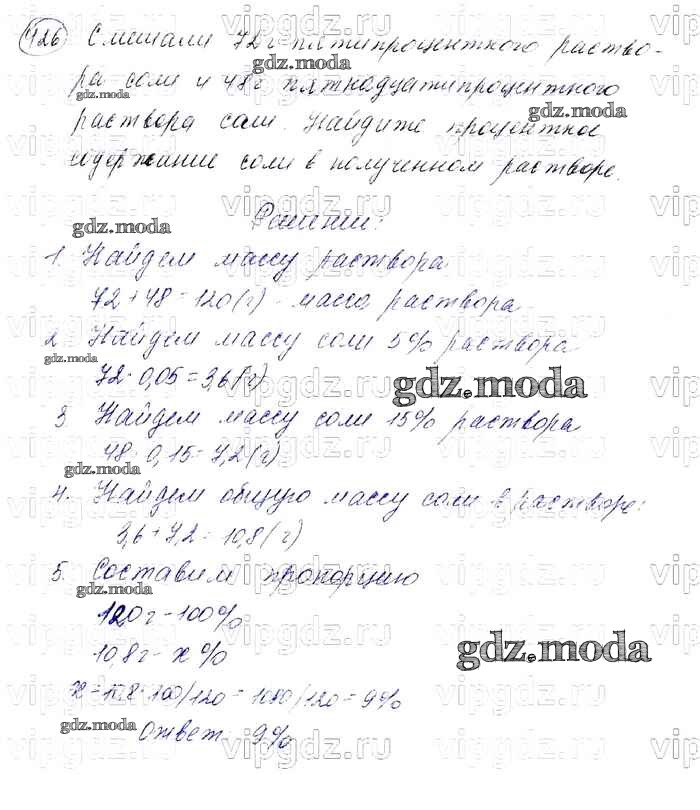 426 Смешали 72 г пятипроцентного раство-
ра соли и 48 г пятнадцатипроцентного
раствора соли. Найдите процентное
содержание соли в полученном растворе.
Решение:
1 Найдем массу раствора
72 + 48 = 120 (г) - масса раствора
2. Найдем массу соли 5% раствора
72 · 0,05 = 3,6 (г)
3 Найдем массу соли 15% раствора
48 · 0,15 = 7,2 (г)
4. Найдем общую массу соли в растворе:
3,6 + 7,2 = 10,8 (г)
5. Составим пропорцию
120 г - 100%
10,8 г - x %
x = 10,8 · 100/120 = 1080/120 = 9%
Ответ 9%
gdz.moda
vipgdz.ru